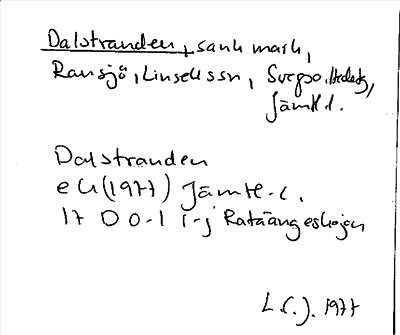 Dalstranden, sank mark,
Ransjö, Linsells sn, Svegso. Hedebg,
Jämtl l.
Dalstranden
ek (1977) Jämtl. l.
17 D 0-1 i-j Rataängeshojen
L.C.J. 1977